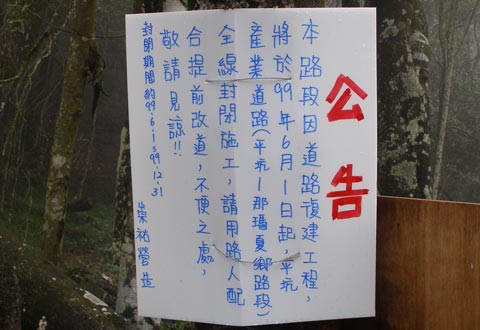 公告
本路段因道路復建工程，
將於99年6月1日起，平坑
產業道路(平坑-那瑪夏鄉路段)
全線封閉施工，請用路人配
合提前改道，不便之處，
敬請見諒!!
封閉期間約99.6.1~99.12.31
崇祐營造